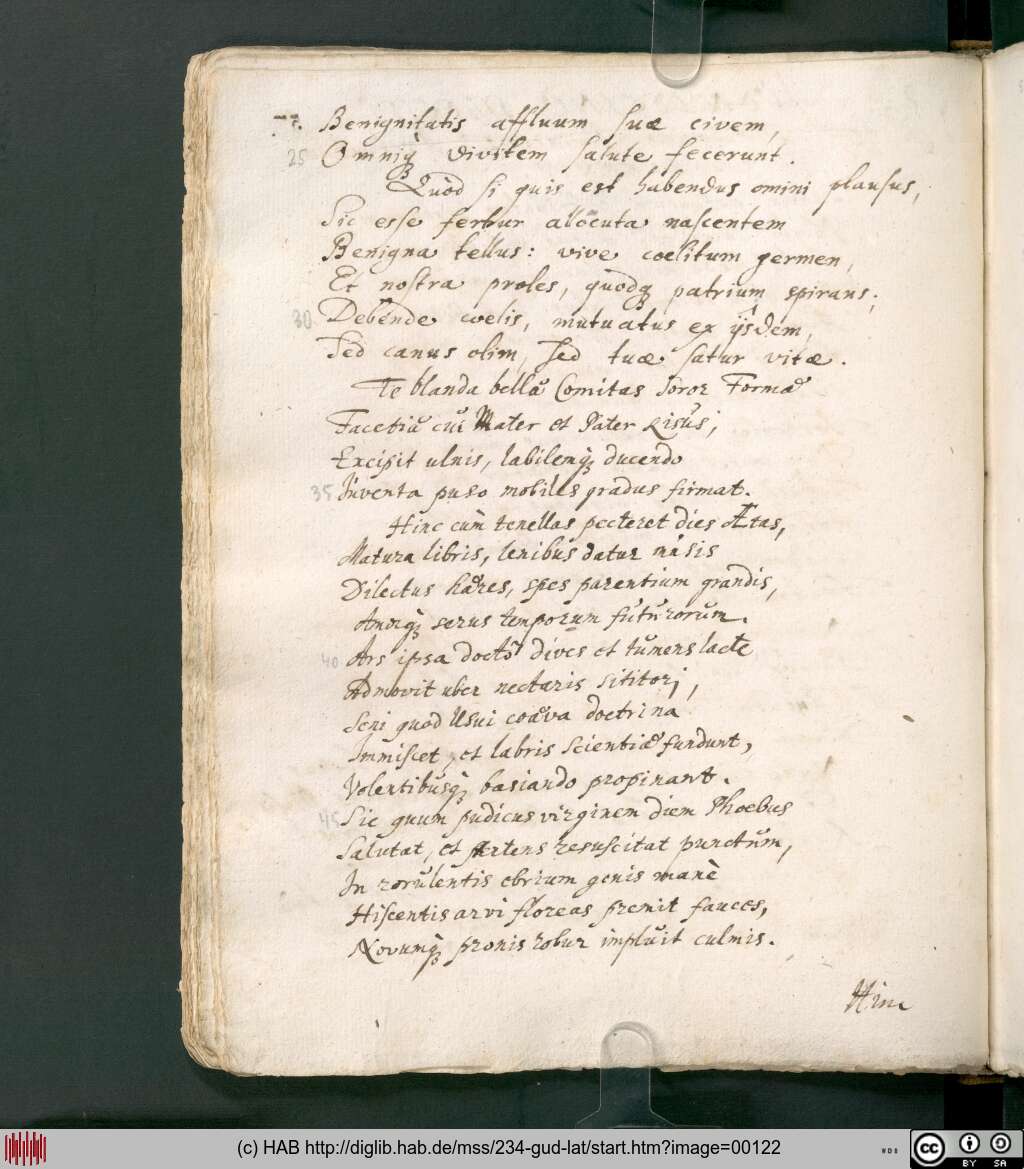 Benignitatis affluum suæ civem,
25 Omniq; divitem salute fecerunt.
Quòd si quis est habendus omini plausus,
Sic esse fertur allocuta nascentem
Benigna tellus: vive coelitum germen,
Et nostra proles, quodq; patrium spirans;
30 Debende coelis, mutuatus ex ijsdem,
Sed canus olim, sed tuæ satur vitæ.
Te blanda bella Comitas soror Formæ
Facetia cui Mater et Pater Risus,
Excipit ulnis, labilemq; ducendo
35 Inventa puso mobiles gradus firmat.
Hinc cùm tenellas pecteret dies Ætas,
Matura libris, lenibus datur musis
Dilectus hæres, spes parentium grandis,
Amorq; serus temporum futurorum.
40 Ars ipsa docto dives et tumens lacte
Admovit uber nectaris sititori,
Seni quod Usui coæva doctrina
Immiscet, et labris scientiæ fundunt,
Volentibusq; basiando propinant.
45 Sic quum pudicus virginem diem Phoebus
Salutat, et resuscitat punctum,
In rorulentis ebrium genis manè
Hiscentis arvi floreas premit fauces,
Novumq; pronis robur impluit culmis.
Hinc
(c) HAB http://diglib.hab.de/mss/234-gud-lat/start.htm?image=00122
WDB
cc
BY SA